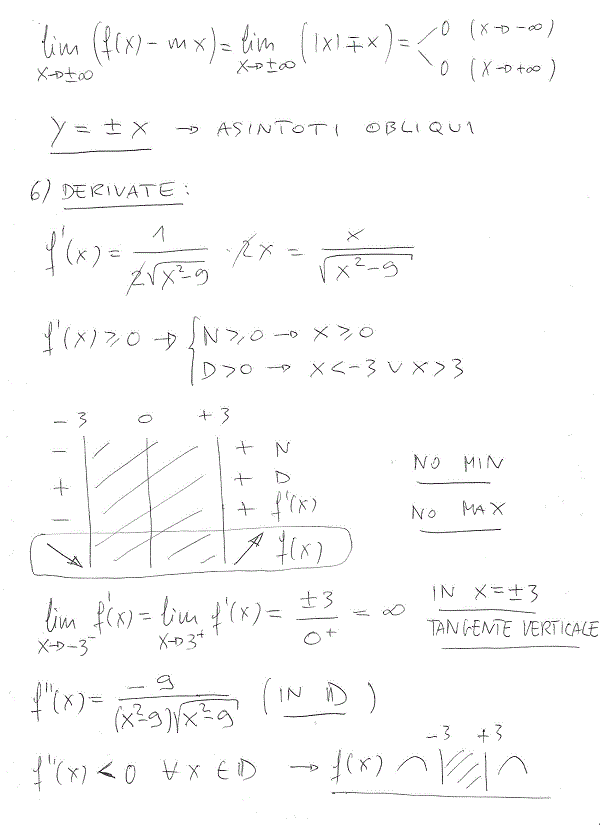 lim x→±∞ (f(x) - mx) = lim x→±∞ (|x| ∓ x) = 0 (x→-∞) 0 (x→+∞)
y = ±x → ASINTOTI OBLIQUI
6) DERIVATE:
f'(x) = 1/(2√(x²-9)) · 2x = x/√(x²-9)
f'(x) ≥ 0 → { N ≥ 0 → x ≥ 0
D > 0 → x < -3 ∨ x > 3
-3 0 +3
- + N
+ + D
- + f'(x)
↘ ↗ f(x)
NO MIN
NO MAX
lim x→-3⁻ f'(x) = lim x→3⁺ f'(x) = ±3/0⁺ = ∞
IN x = ±3
TANGENTE VERTICALE
f''(x) = -9/((x²-9)√(x²-9)) (IN D)
-3 +3
f''(x) < 0 ∀x ∈ D → f(x) ⌒ ⌒